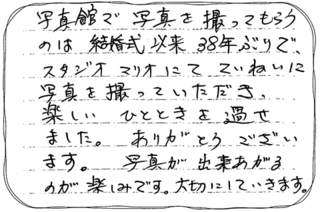 写真館で写真を撮ってもらう
のは結婚式以来38年ぶりで、
スタジオマリオにてていねいに
写真を撮っていただき、
楽しいひとときを過せ
ました。ありがとうござい
ます。写真が出来あがる
のが楽しみです。大切にしていきます。